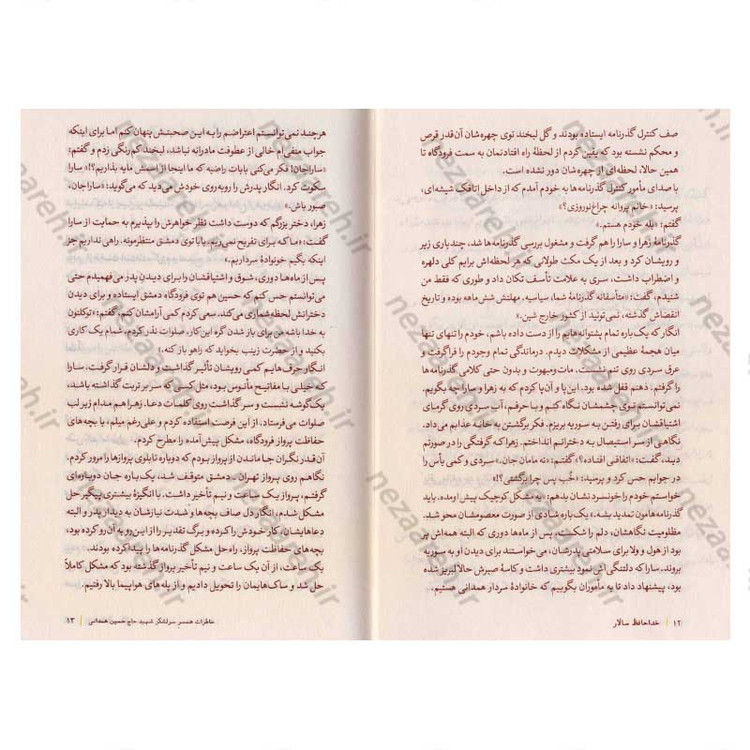 صف کنترل گذرنامه ایستاده بودند و گل لبخند توی چهره‌شان آن‌قدر قرص
و محکم نشسته بود که یقین کردم از لحظهٔ راه افتادنمان به سمت فرودگاه تا
همین حالا، لحظه‌ای از چهره‌شان دور نشده است.
با صدای مأمور کنترل گذرنامه‌ها به خودم آمدم که از داخل اتاقک شیشه‌ای،
پرسید: «خانم پروانه چراغ‌نوروزی؟»
گفتم: «بله خودم هستم.»
گذرنامهٔ زهرا و سارا را هم گرفت و مشغول بررسی گذرنامه‌ها شد. چند باری زیر
و رویشان کرد و بعد از یک مکث طولانی که هر لحظه‌اش برایم کلی دلهره
و اضطراب داشت، سری به علامت تأسف تکان داد و طوری که فقط من
شنیدم، گفت: «متأسفانه گذرنامهٔ شما، سیاسیه. مهلتش شش‌ماهه بوده و تاریخ
انقضاش گذشته، نمی‌تونید از کشور خارج شین.»
انگار که یک‌باره تمام پشتوانه‌هایم را از دست داده باشم، خودم را تنهای تنها
میان هجمهٔ عظیمی از مشکلات دیدم. درماندگی تمام وجودم را فراگرفت و
عرق سردی روی تنم نشست. مات و مبهوت و بدون حتی کلامی گذرنامه‌ها
را گرفتم. ذهنم قفل شده بود. این پا و آن پا کردم که به زهرا و سارا چه بگویم.
نمی‌توانستم توی چشمشان نگاه کنم و با حرفم، آب سردی روی گرمای
اشتیاقشان برای رفتن به سوریه بریزم. فکر برگشتن به خانه عذابم می‌داد.
نگاهی از سر استیصال به دخترانم انداختم. زهرا که گرفتگی را در صورتم
دید، گفت: «اتفاقی افتاده؟» گفتم: «نه مامان جان.» سردی و کمی یأس را
در جوابم حس کرد و پرسید: «خُب پس چرا برگشتی؟!»
خواستم خودم را خونسرد نشان بدهم: «یه مشکل کوچیک پیش اومده. باید
گذرنامه‌هامون تمدید بشه.» یک‌باره شادی از صورت معصومشان محو شد.
مظلومیت نگاهشان، دلم را شکست. پس از ماه‌ها دوری که البته همه‌اش پر
بود از هول و ولا برای سلامتی پدرشان، می‌خواستند برای دیدن او به سوریه
بروند. سارا که دلتنگی اش نمود بیشتری داشت و کاسهٔ صبرش حالا لبریز شده
بود، پیشنهاد داد تا به مأموران بگوییم که خانوادهٔ سردار همدانی هستیم.
۱۲ خداحافظ سالار
هرچند نمی‌توانستم اعتراضم را به این صحبتش پنهان کنم اما برای اینکه
جواب منفی‌ام خالی از عطوفت مادرانه نباشد، لبخند کم‌رنگی زدم و گفتم:
«سارا جان! فکر می‌کنی بابات راضیه که ما اینجا از اسمش مایه بذاریم؟!» سارا
سکوت کرد. انگار پدرش را روبه‌روی خودش می‌دید که می‌گوید: «سارا جان،
صبور باش.»
زهرا، دختر بزرگم که دوست داشت نظر خواهرش را بپذیرم به حمایت از سارا
گفت: «ما که برای تفریح نمی‌ریم. بابا توی دمشق منتظرمونه. راهی نداریم جز
اینکه بگیم خانوادهٔ سرداریم.»
پس از ماه‌ها دوری، شوق و اشتیاقشان را برای دیدن پدر می‌فهمیدم حتی
می‌توانستم حس کنم که حسین هم توی فرودگاه دمشق ایستاده و برای دیدن
دخترانش لحظه‌شماری می‌کند. سعی کردم کمی آرامشان کنم. گفتم: «توکلتون
به خدا باشه من برای باز شدن گره این کار، صلوات نذر کردم. شمام یک کاری
بکنید و از حضرت زینب بخواید که راهو باز کنه.»
انگار حرف‌هایم کمی رویشان تأثیر گذاشت و دلشان قرار گرفت. سارا
که خیلی با مفاتیح مأنوس بود، مثل کسی که سر بر تربت گذاشته باشد،
یک‌گوشه نشست و سر گذاشت روی کلمات دعا. زهرا هم مدام زیر لب
صلوات می‌فرستاد. از این فرصت استفاده کردم و علی‌رغم میلم، با بچه‌های
حفاظت پرواز فرودگاه، مشکل پیش‌آمده را مطرح کردم.
آن قدر نگران جا ماندن از پرواز بودم که دوباره تابلوی پروازها را مرور کردم.
نگاهم روی پرواز تهران ـ دمشق متوقف شد. یک‌باره جان دوباره‌ای
گرفتم، پرواز یک ساعت و نیم تأخیر داشت. با انگیزهٔ بیشتری پیگیر حل
مشکل شدم. انگار دل صاف بچه‌ها و شدت نیازشان به دیدار پدر و البته
دعاهایشان، کار خودش را کرده و برگ تقدیر را از این رو به آن رو کرده بود.
بچه‌های حفاظت پرواز، راه حل مشکل گذرنامه‌ها را پیدا کرده بودند.
یک ساعت، از آن یک ساعت و نیم تأخیر پرواز گذشته بود که مشکل کاملاً
حل شد و ساک‌هایمان را تحویل دادیم و از پله‌های هواپیما بالا رفتیم.
خاطرات همسر سرلشکر شهید حاج حسین همدانی ۱۳
nezaareh.ir